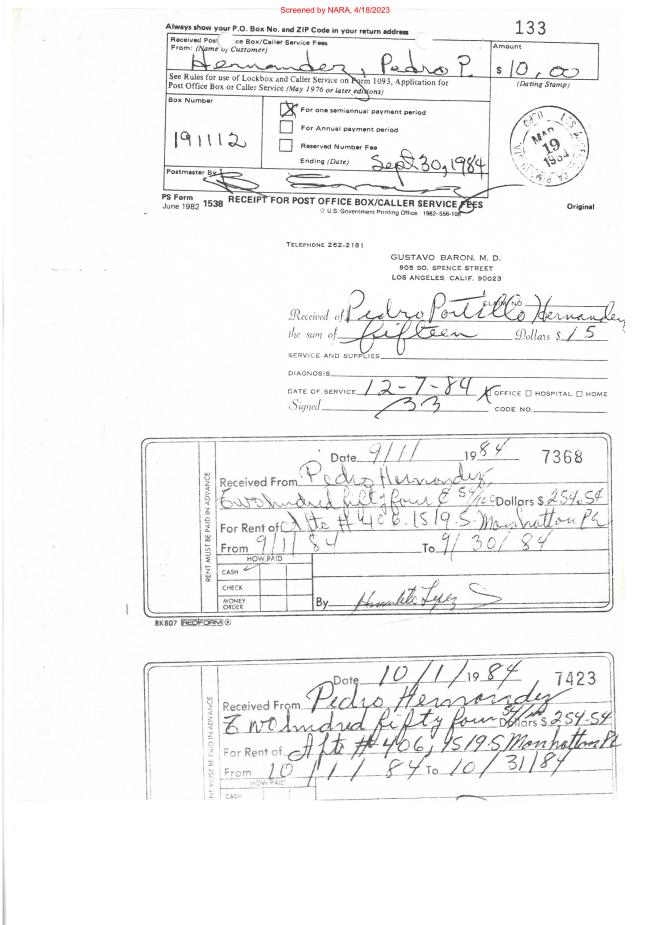 Screened by NARA, 4/18/2023
133
Always show your P.O. Box No. and ZIP Code in your return address
Received Post ce Box/Caller Service Fees
From: (Name of Customer)
Hernandez, Pedro P.
Amount
$ 10,00
See Rules for use of Lockbox and Caller Service on Form 1093, Application for
Post Office Box or Caller Service (May 1976 or later editions)
(Dating Stamp)
Box Number
191112
For one semiannual payment period
For Annual payment period
Reserved Number Fee
Ending (Date) Sept 30, 1984
MAR
19
1984
Postmaster By
PS Form
June 1982 1538 RECEIPT FOR POST OFFICE BOX/CALLER SERVICE FEES
☆ U.S. Government Printing Office: 1982-556-108
Original
TELEPHONE 262-2181
GUSTAVO BARON, M. D.
905 SO. SPENCE STREET
LOS ANGELES, CALIF. 90023
CLAIM NO.
Received of Pedro Portillo Hernandez
the sum of fifteen Dollars $ 15
SERVICE AND SUPPLIES
DIAGNOSIS
DATE OF SERVICE 12-7-84 X OFFICE □ HOSPITAL □ HOME
Signed
CODE NO.
Date 9/1/ 1984 7368
RENT MUST BE PAID IN ADVANCE
Received From Pedro Hernandez
Twohundred fifty four & 54/100 Dollars $ 254.54
For Rent of Apto # 406-1519-S-Manhatton Pl
From 9/1/84 To 9/30/84
HOW PAID
CASH
CHECK
MONEY
ORDER
By Lopez
8K807 REDIFORM ®
Date 10/1/1984 7423
NT MUST BE PAID IN ADVANCE
Received From Pedro Hernandez
Twohundred fifty four 54/100 Dollars $ 254.54
For Rent of Apto # 406, 1519 S, Manhattan Pl
From 10/1/84 To 10/31/84
HOW PAID
CASH